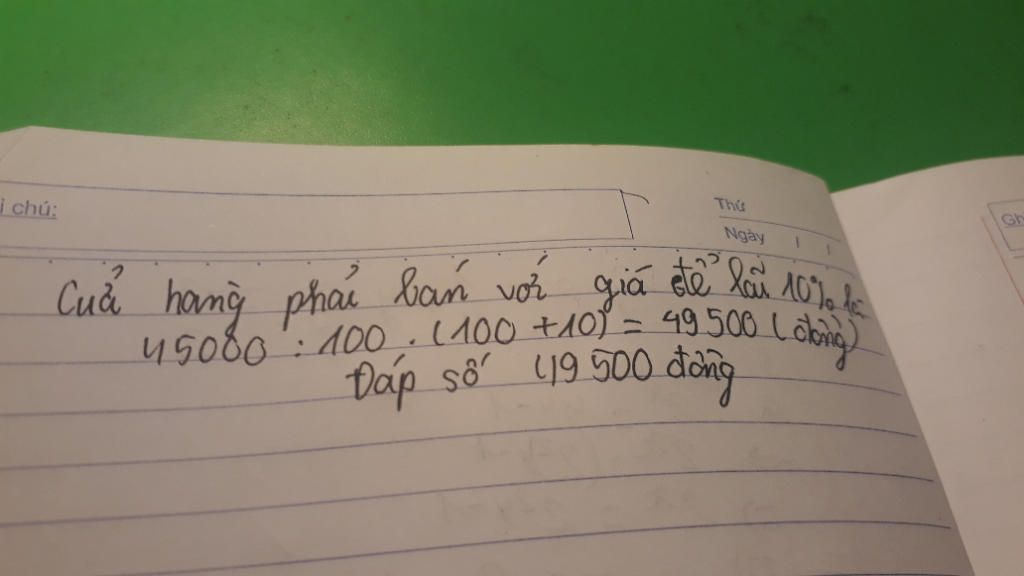 i chú:
Thứ
Ngày / /
Gh
Cuả hang̀ phải bán với giá để lãi 10% là
45000 : 100 . (100 + 10) = 49 500 (đồng)
Đáp số 49 500 đồng